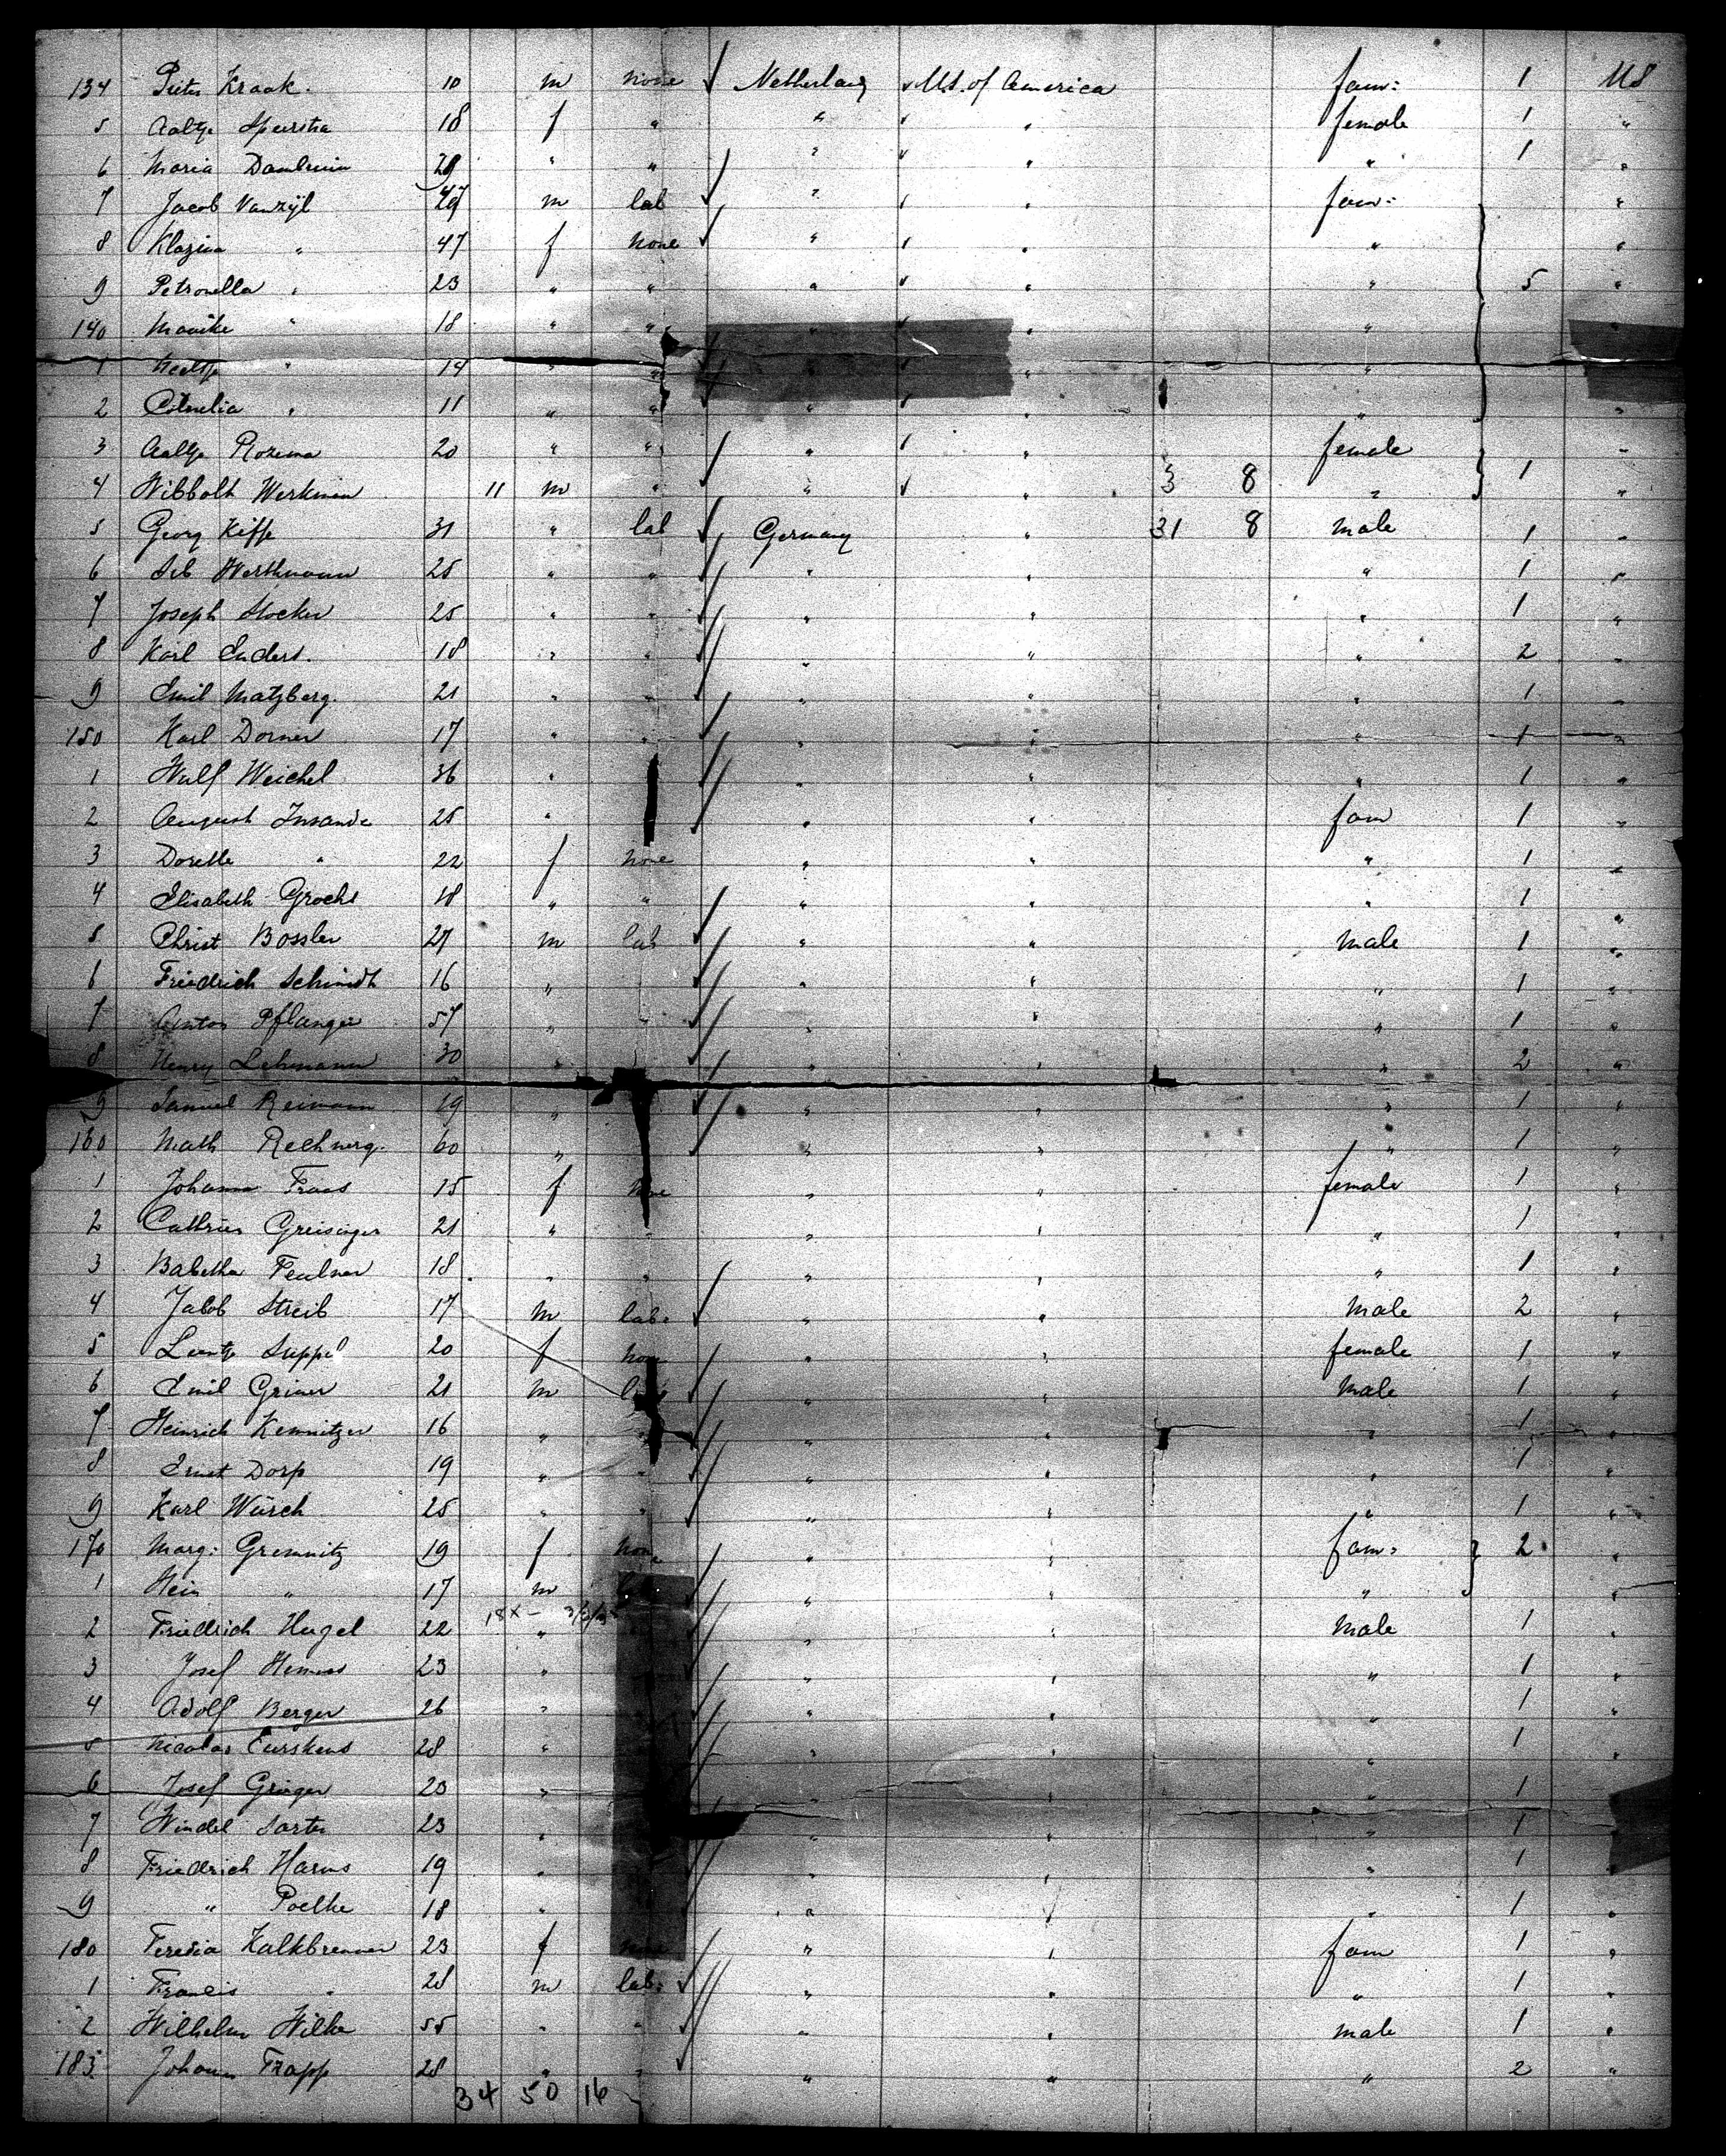 134 Pieter Kraak. 10 m none Netherlang U.S. of America fam: 1 US
5 Aaltje Speerstra 18 f " " " female 1 "
6 Maria Dambruin " " " " " 1 "
7 Jacob Vanzÿl m lab " " fam: "
8 Klazina " 47 f none " " " "
9 Petronella " 23 " " " " " 5 "
140 Marike " 18 " " " " "
1 Neeltje " 14 " " " " "
2 Cornelia " 11 " " " " " "
3 Aaltje Rozema 20 " " " " female "
4 Wibbolt Werkman 11 m " " " 3 8 " 1 "
5 Georg Kiffe 31 " lab Germany " 31 8 male 1 "
6 Seb Werthmann 25 " " " " " 1 "
7 Joseph Stocker 25 " " " " " 1 "
8 Karl Enders. 18 " " " " " 2 "
9 Emil Matzberg. 21 " " " " " 1 "
150 Karl Dorner 17 " " " " " 1 "
1 Wulf Weichel 36 " " " " 1 "
2 August Insande 25 " " " fam 1 "
3 Dorette " 22 f none " " " 1 "
4 Elisabeth Grochs 18 " " " " " 1 "
5 Christ Bossler 27 m lab " " male 1 "
6 Friedrich Schmidt 16 " " " " 1 "
7 Anton Pflanger 57 " " " " " 1 "
8 Henry Lehmann 30 " " " " 2 "
9 Samuel Reimann 19 " " " " 1 "
160 Math Rechnerg. 60 " " " " 1 "
1 Johanna Fraas 15 f none " " female 1 "
2 Cathrin Greisinger 21 " " " " " 1 "
3 Babetha Peulner 18 " " " " " 1 "
4 Jakob Streib 17 m lab: " " male 2 "
5 Leentje Suppel 20 f none " " female 1 "
6 Emil Griner 21 m lab " " male 1 "
7 Heinrich Kemnitzer 16 " " " " " 1 "
8 Ernst Dorp 19 " " " " " 1 "
9 Karl Würsch 25 " " " " " 1 "
170 Marg: Gremnitz 19 f none " " fam: 2 "
1 Hein " 17 m " " " "
18 X –
2 Friedrich Hugel 22 " " " male 1 "
3 Josef 23 " " " " 1 "
4 Adolf Berger 26 " " " " 1 "
5 Nicolas Eurskens 28 " " " " 1 "
6 Josef Gringer 23 " " " 1 "
7 Windel Sarter 23 " " " " 1 "
8 Friedrich Harms 19 " " " " 1 "
9 " Poelke 18 " " " " 1 "
180 Teresia Kalkbrenner 23 f none " " fam 1 "
1 Francis " 28 m lab: " " " 1 "
2 Wilhelm Wilke 55 " " " " male 1 "
183 Johann Trapp 28 " " " " " 2 "
34 50 16